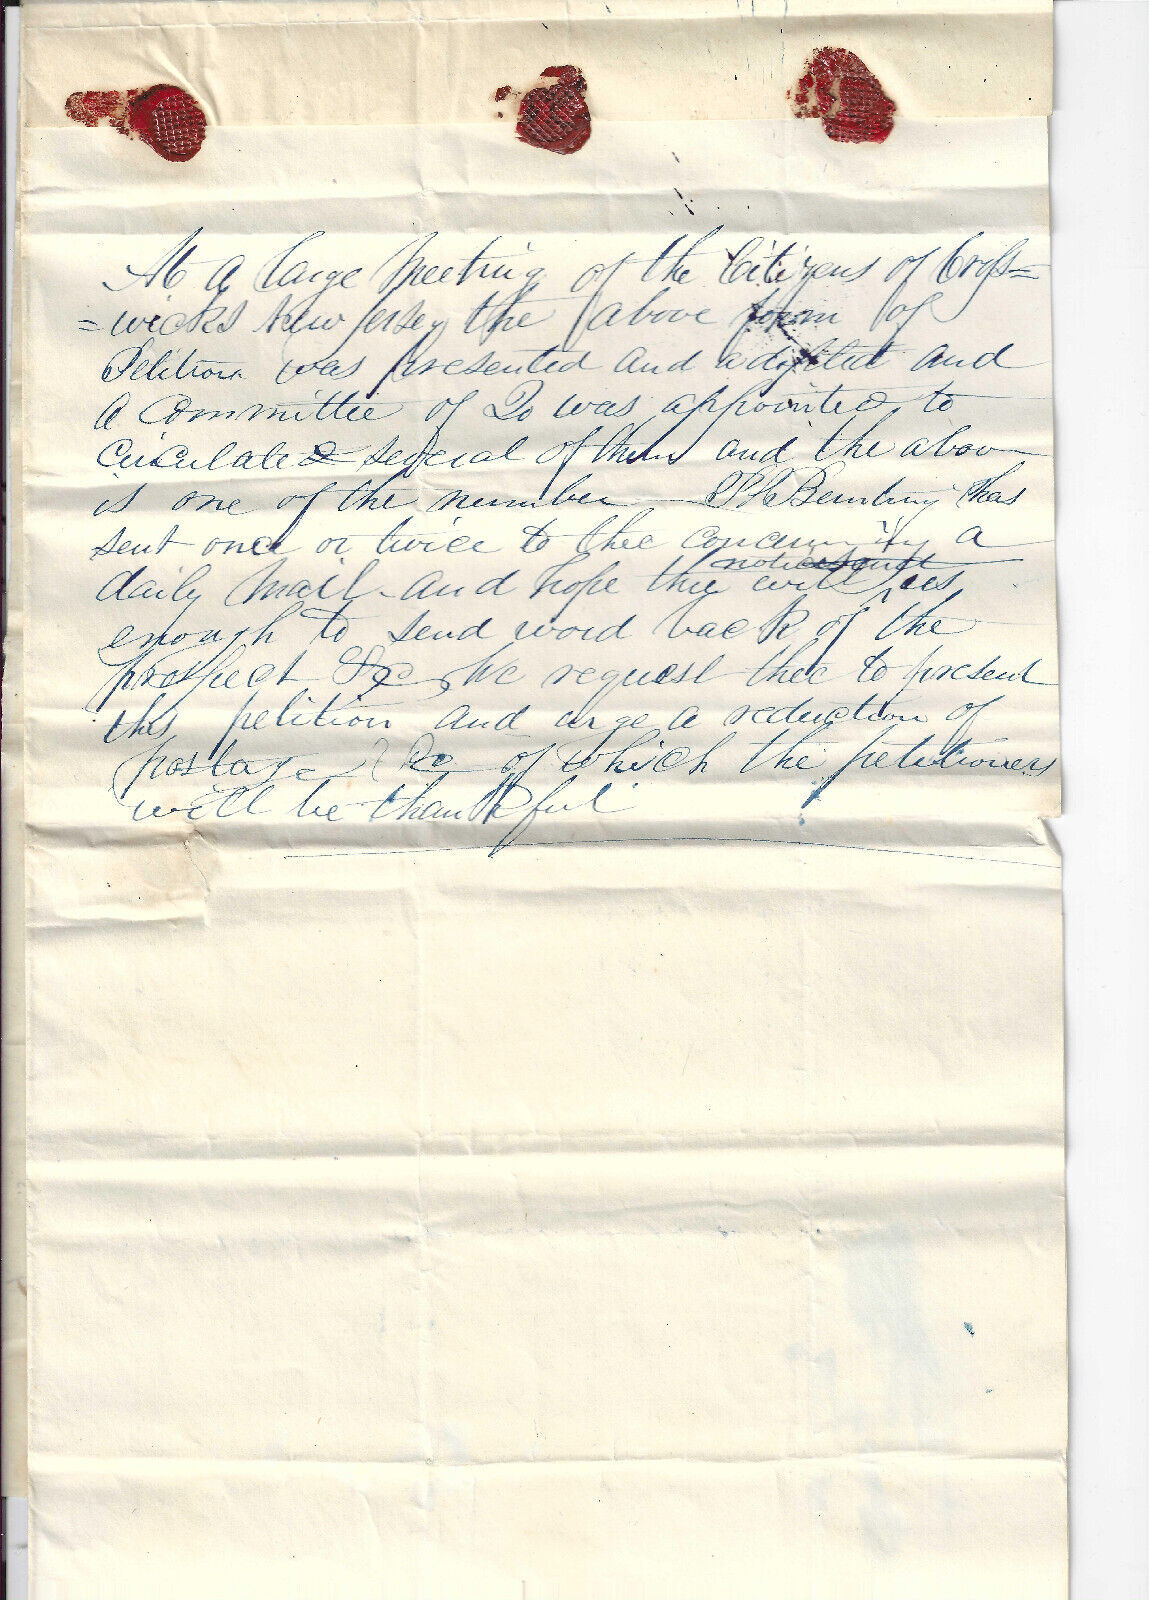 At a large Meeting of the Citizens of Cross=
=wicks New Jersey the above form of
Petition was presented and adopted and
a Committee of 20 was appointed to
Circulate several of them and the above
is one of the number Bunting has
sent once or twice to thee concerning a
daily Mail and hope thee will us
notice
enough to send word back of the
prospect &c We request thee to present
this petition and urge a reduction of
postage &c of which the petitioners
will be thankful